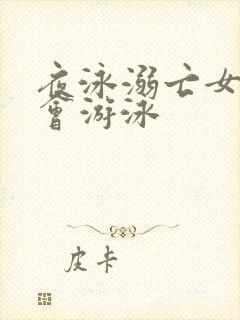 夜泳溺亡女
會游泳
皮卡